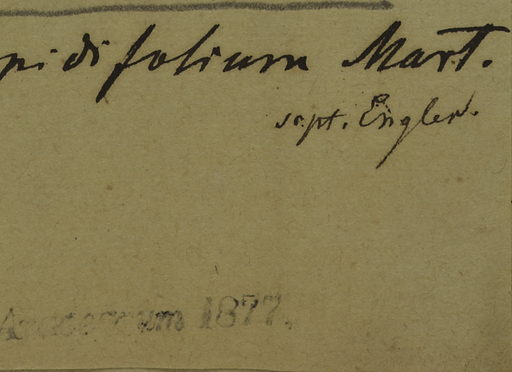 pidifolium Mart.
sept. Engler.
1877.